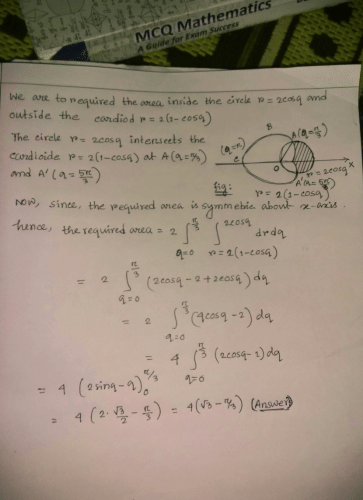 MCQ Mathematics
A Guide for Exam Success
We are to required the area inside the circle r = 2cosq and
outside the cardiod r = 2(1-cosq)
The circle r = 2cosq intersects the
cardioide r = 2(1-cosq) at A(q=π/3)
and A' (q = 5π/3)
B
A(q=π/3)
(q=π)
C
O
X
r=2cosq
A'(q=5π/3)
fig:
r = 2(1-cosq)
Now, since, the required area is symmetic about x-axis.
hence, the required area = 2 ∫_{q=0}^{π/3} ∫_{r=2(1-cosq)}^{2cosq} drdq
= 2 ∫_{q=0}^{π/3} (2cosq-2+2cosq) dq
= 2 ∫_{q=0}^{π/3} (4cosq-2) dq
= 4 ∫_{q=0}^{π/3} (2cosq-1) dq
= 4 (2sinq-q)_0^{π/3}
= 4 (2·√3/2 - π/3) = 4(√3-π/3) (Answer)